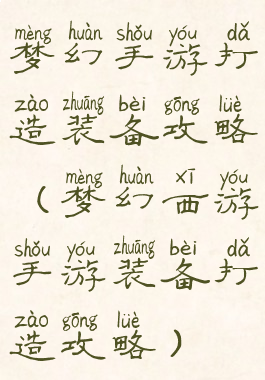 mèng huàn shǒu yóu dǎ
梦幻手游打
zào zhuāng bèi gōng lüè
造装备攻略
mèng huàn xī yóu
(梦幻西游
shǒu yóu zhuāng bèi dǎ
手游装备打
zào gōng lüè
造攻略)